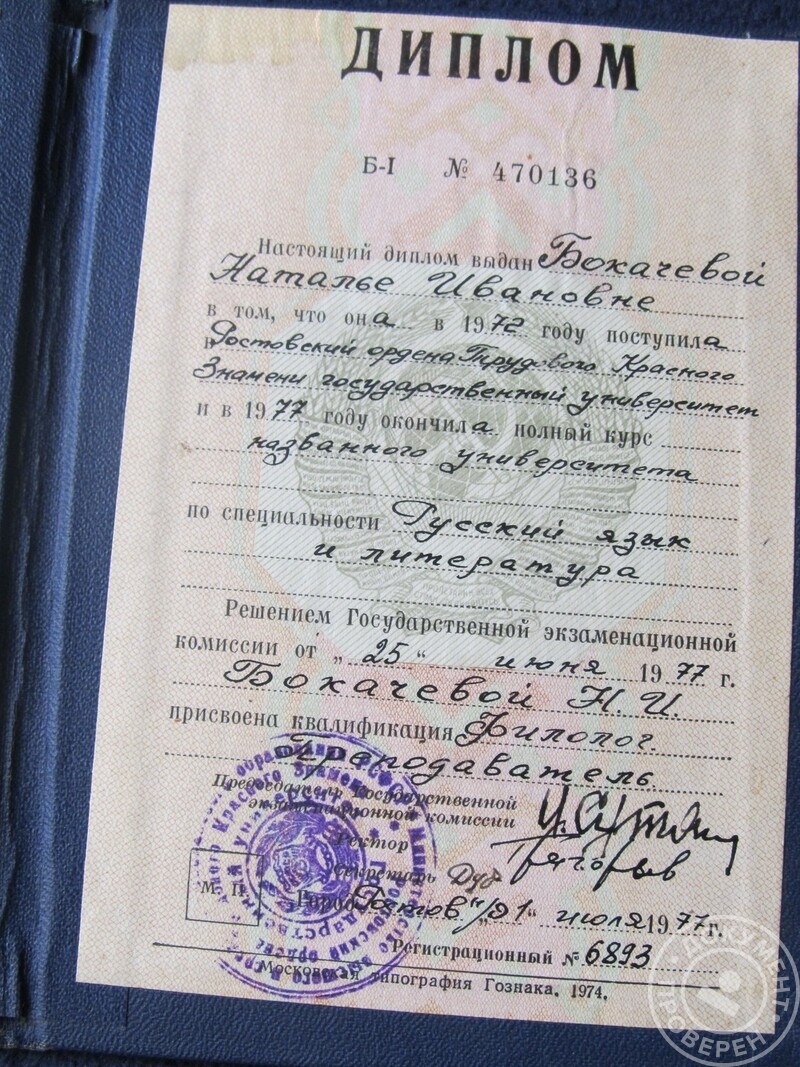 ДИПЛОМ
Б-I № 470136
Настоящий диплом выдан Бокачевой
Наталье Ивановне
в том, что она в 1972 году поступила
в Ростовский ордена Трудового Красного
Знамени государственный университет
и в 1977 году окончила полный курс
названного университета
по специальности Русский язык
и литература
Решением Государственной экзаменационной
комиссии от „25“ июня 1977 г.
Бокачевой Н. И.
присвоена квалификация Филолог.
Преподаватель.
Председатель Государственной
экзаменационной комиссии
Ректор
Секретарь
М. П.
Город Ростов „1“ июля 1977 г.
Регистрационный № 6893
Московская типография Гознака. 1974.
ДОКУМЕНТ
ПРОВЕРЕН